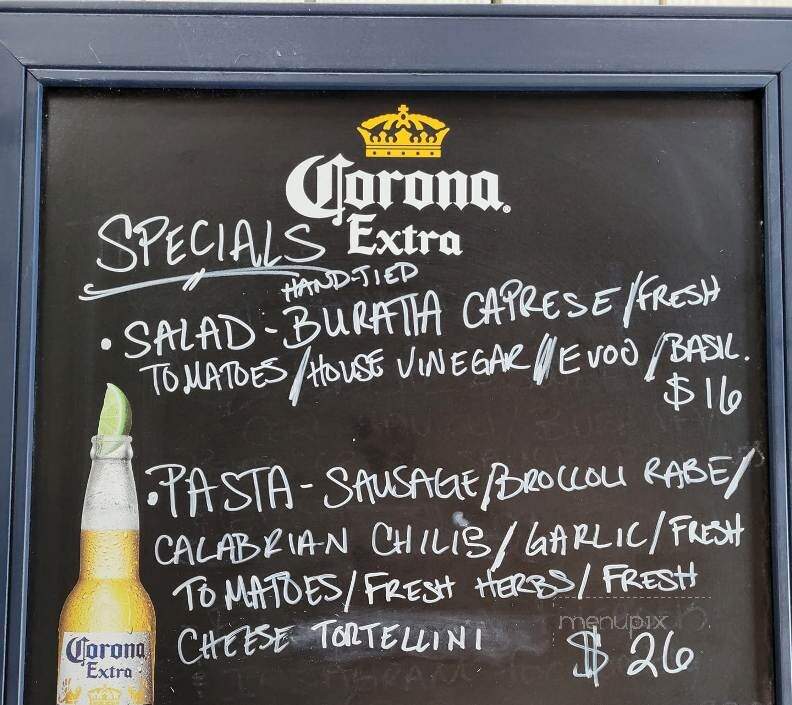 Corona
Extra
SPECIALS
HAND-TIED
• SALAD - BURATTA CAPRESE/FRESH
TOMATOES/HOUSE VINEGAR//EVOO/BASIL.
$16
• PASTA - SAUSAGE/BROCCOLI RABE/
CALABRIAN CHILIS/GARLIC/FRESH
TOMATOES/FRESH HERBS/FRESH
CHEESE TORTELLINI
$26
menupix
Corona
Extra